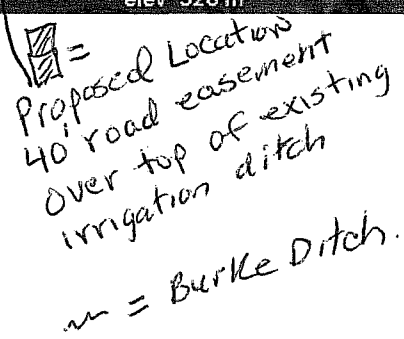 =
Proposed Location
40' road easement
over top of existing
irrigation ditch
= Burke Ditch.